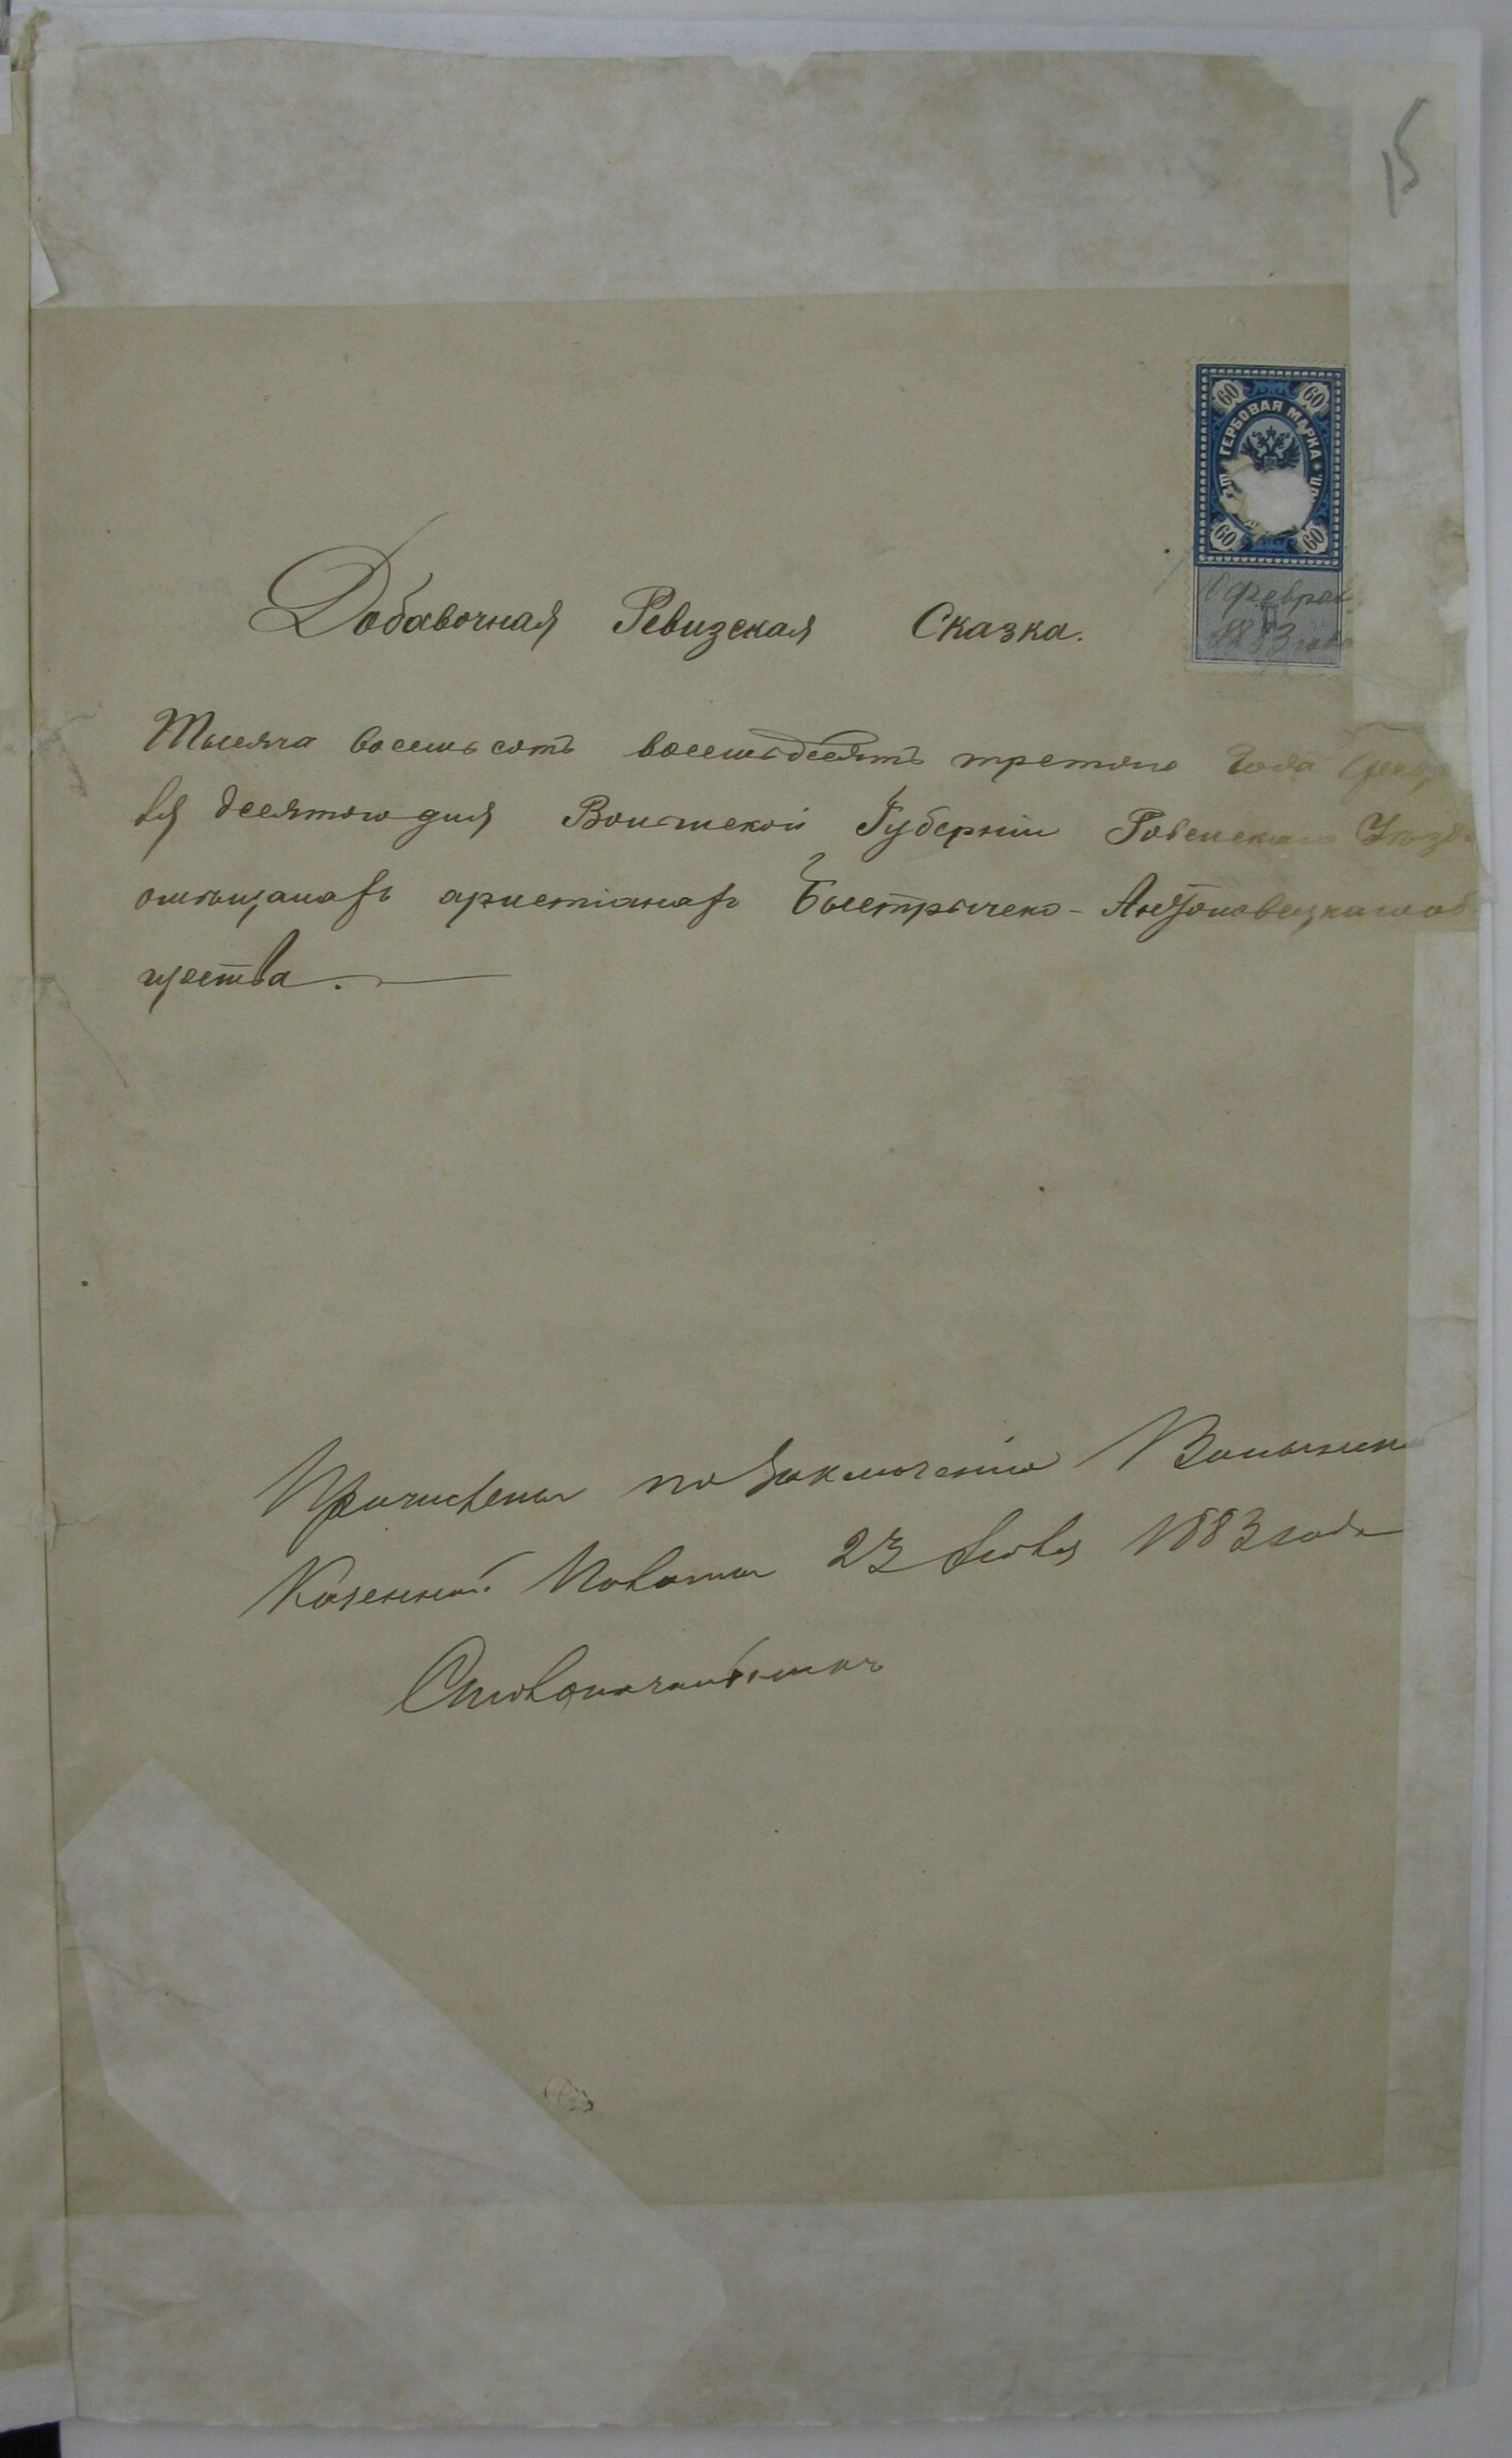 15
60 60
ГЕРБОВАЯ МАРКА
60 60
Феврал
1883 года
Добавочная Ревизская Сказка.
Тысяча восемьсотъ восемьдесятъ третяго года Февр
ля десятого дня Волынской Губерніи Ровенскаго Уѣзда
омѣщанахъ христіанахъ Быстричско-Антоновецкаго об
щества.
Причислены по заключенію Волынск
Казенной Палаты 23 1883 года
Столоначальникъ